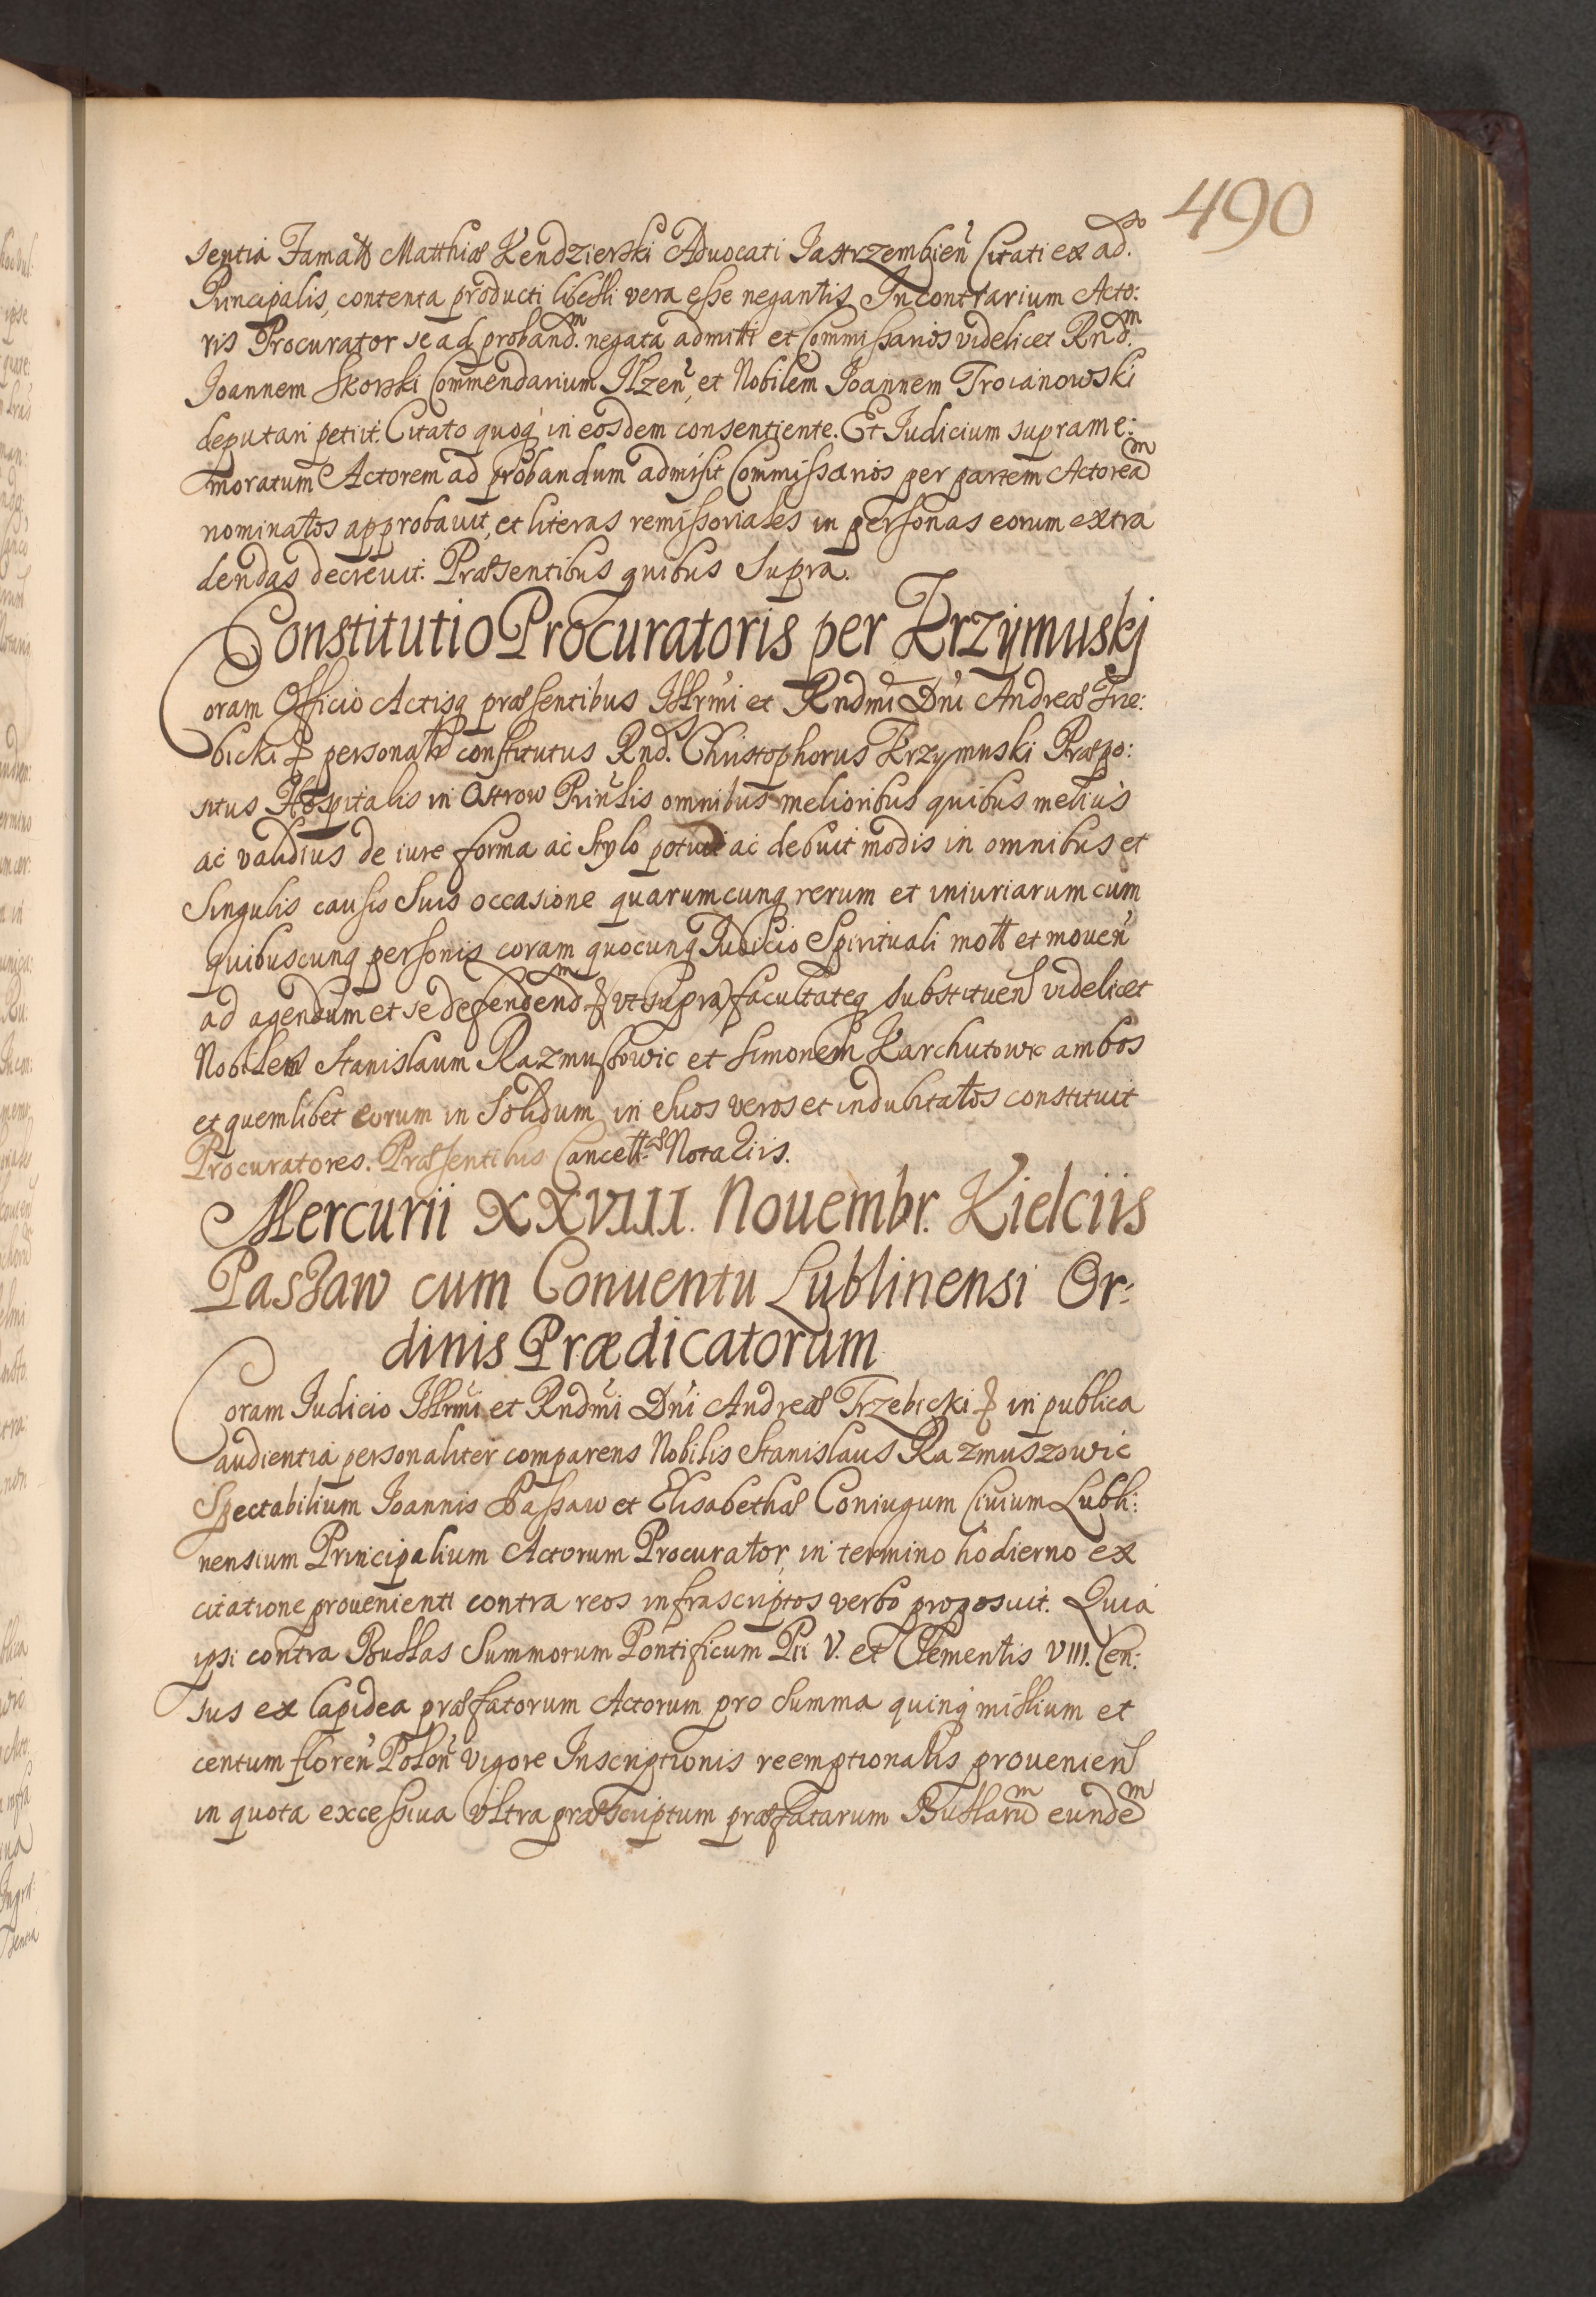 490
sentia Famatt Matthiæ Kendzierski Aduocati Jastrzembien̄ Citati ex ad.so
Principalis, contenta producti libelli vera esse negantis In contrarium Acto:
ris Procurator se ad proband.m negata admitti et Commissarios videlicet Rnd.m
Joannem Skorski Commendarium Ilzen̄, et Nobilem Joannem Troianowski
deputari petiit. Citato quoq́ in eosdem consentiente. Et Judicium suprame:
moratum Actorem ad probandum admisit Commissarios per partem Actoream
nominatos approbauit, et literas remissoriales in personas eorum extra
dendas decreuit. Præsentibus quibus Supra.
Constitutio Procuratoris per Krzymuskj
Coram Officio Actisq præsentibus Illrmi et Rndmi Dni Andreæ Trze:
bicki & personatr constitutus Rnd. Christophorus Krzymuski Præpo:
situs Hospitalis in Ostrow Prinlis omnibus melioribus quibus melius
ac validius de iure forma ac Stylo potuit ac debuit modis in omnibus et
Singulis causis Suis occasione quarumcunq rerum et iniuriarum cum
quibuscunq personis coram quocunq Judicio Spirituali mott et mouen̄
ad agendum et se defendendm & (vt supra) facultateq substituen videlicet
Nobilem Stanislaum Razmussowic et Simonem Karchutowic ambos
et quemlibet eorum in Solidum in Suos veros et indubitatos constituit
Procuratores. Præsentibus Cancell. Notariis.
Mercurii XXVIII. Nouembr. Kielciis
Paszaw cum Conuentu Lublinensi Or:
dinis Prædicatorum
Coram Iudicio Illrmi et Rndmi Dni Andreæ Trzebicki & in publica
audientia personaliter comparens Nobilis Stanislaus Razmuszowic
Spectabilium Joannis Passaw et Elisabethæ Coniugum Ciuium Lubli:
nensium Principalium Actorum Procurator, in termino hodierno ex
citatione prouenienti contra reos infrascriptos verbo proposuit. Quia
ipsi contra Bullas Summorum Pontificum Pii V. et Clementis VIII. Cen:
sus ex lapidea præfatorum Actorum pro Summa quinq́ millium et
centum floren̄ Polon̄ vigore Inscriptionis reemptionalis prouenien
in quota excessiua vltra præscriptum præfatarum Bullarum eundem